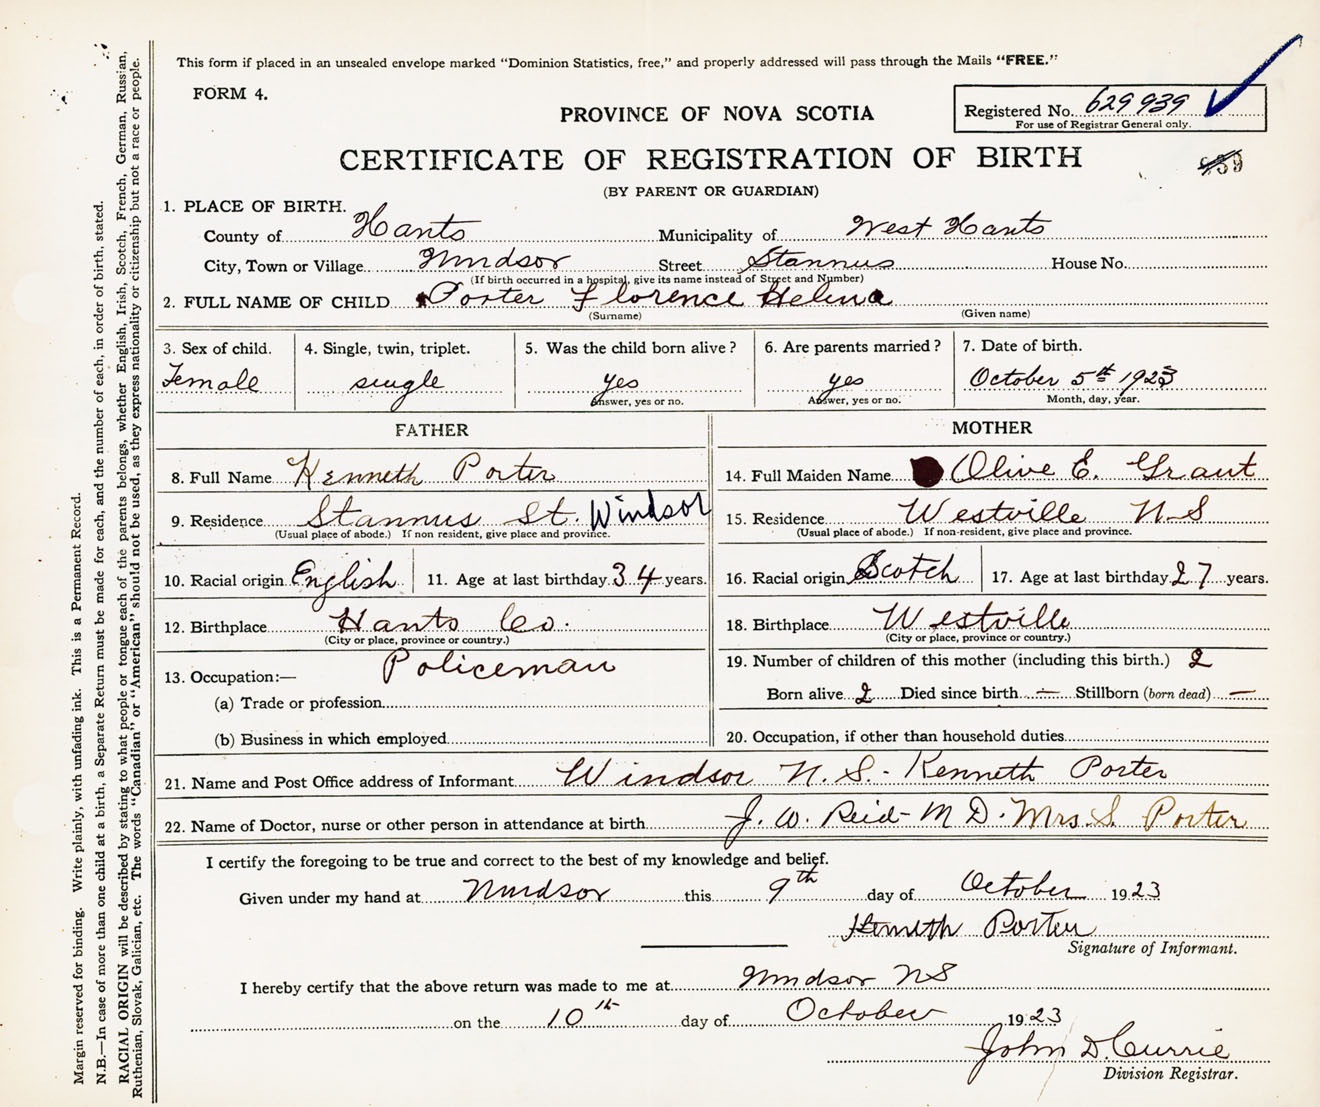 This form if placed in an unsealed envelope marked "Dominion Statistics, free," and properly addressed will pass through the Mails "FREE."
FORM 4.
PROVINCE OF NOVA SCOTIA
Registered No. 629939
For use of Registrar General only.
CERTIFICATE OF REGISTRATION OF BIRTH
(BY PARENT OR GUARDIAN)
1. PLACE OF BIRTH.
County of Hants Municipality of West Hants
City, Town or Village Windsor Street Stannus House No.
(If birth occurred in a hospital, give its name instead of Street and Number)
2. FULL NAME OF CHILD Porter Florence Helena
(Surname) (Given name)
3. Sex of child. 4. Single, twin, triplet. 5. Was the child born alive? 6. Are parents married? 7. Date of birth.
Female single yes yes October 5th 1923
Answer, yes or no. Answer, yes or no. Month, day, year.
FATHER MOTHER
8. Full Name Kenneth Porter 14. Full Maiden Name Olive E. Grant
9. Residence Stannus St. Windsor 15. Residence Westville N.S
(Usual place of abode.) If non resident, give place and province. (Usual place of abode.) If non-resident, give place and province.
10. Racial origin English 11. Age at last birthday 34 years. 16. Racial origin Scotch 17. Age at last birthday 27 years.
12. Birthplace Hants Co. 18. Birthplace Westville
(City or place, province or country.) (City or place, province or country.)
13. Occupation:— Policeman 19. Number of children of this mother (including this birth.) 2
(a) Trade or profession Born alive 2 Died since birth — Stillborn (born dead) —
(b) Business in which employed 20. Occupation, if other than household duties
21. Name and Post Office address of Informant Windsor N.S. - Kenneth Porter
22. Name of Doctor, nurse or other person in attendance at birth J. W. Reid - M D. Mrs. S. Porter
I certify the foregoing to be true and correct to the best of my knowledge and belief.
Given under my hand at Windsor this 9th day of October 1923
Kenneth Porter
Signature of Informant.
I hereby certify that the above return was made to me at Windsor NS
on the 10th day of October 1923
John D. Currie
Division Registrar.
Margin reserved for binding. Write plainly, with unfading ink. This is a Permanent Record.
N.B.—In case of more than one child at a birth, a Separate Return must be made for each, and the number of each, in order of birth, stated.
RACIAL ORIGIN will be described by stating to what people or tongue each of the parents belongs, whether English, Irish, Scotch, French, German, Russian,
Ruthenian, Slovak, Galician, etc. The words "Canadian" or "American" should not be used, as they express nationality or citizenship but not a race or people.